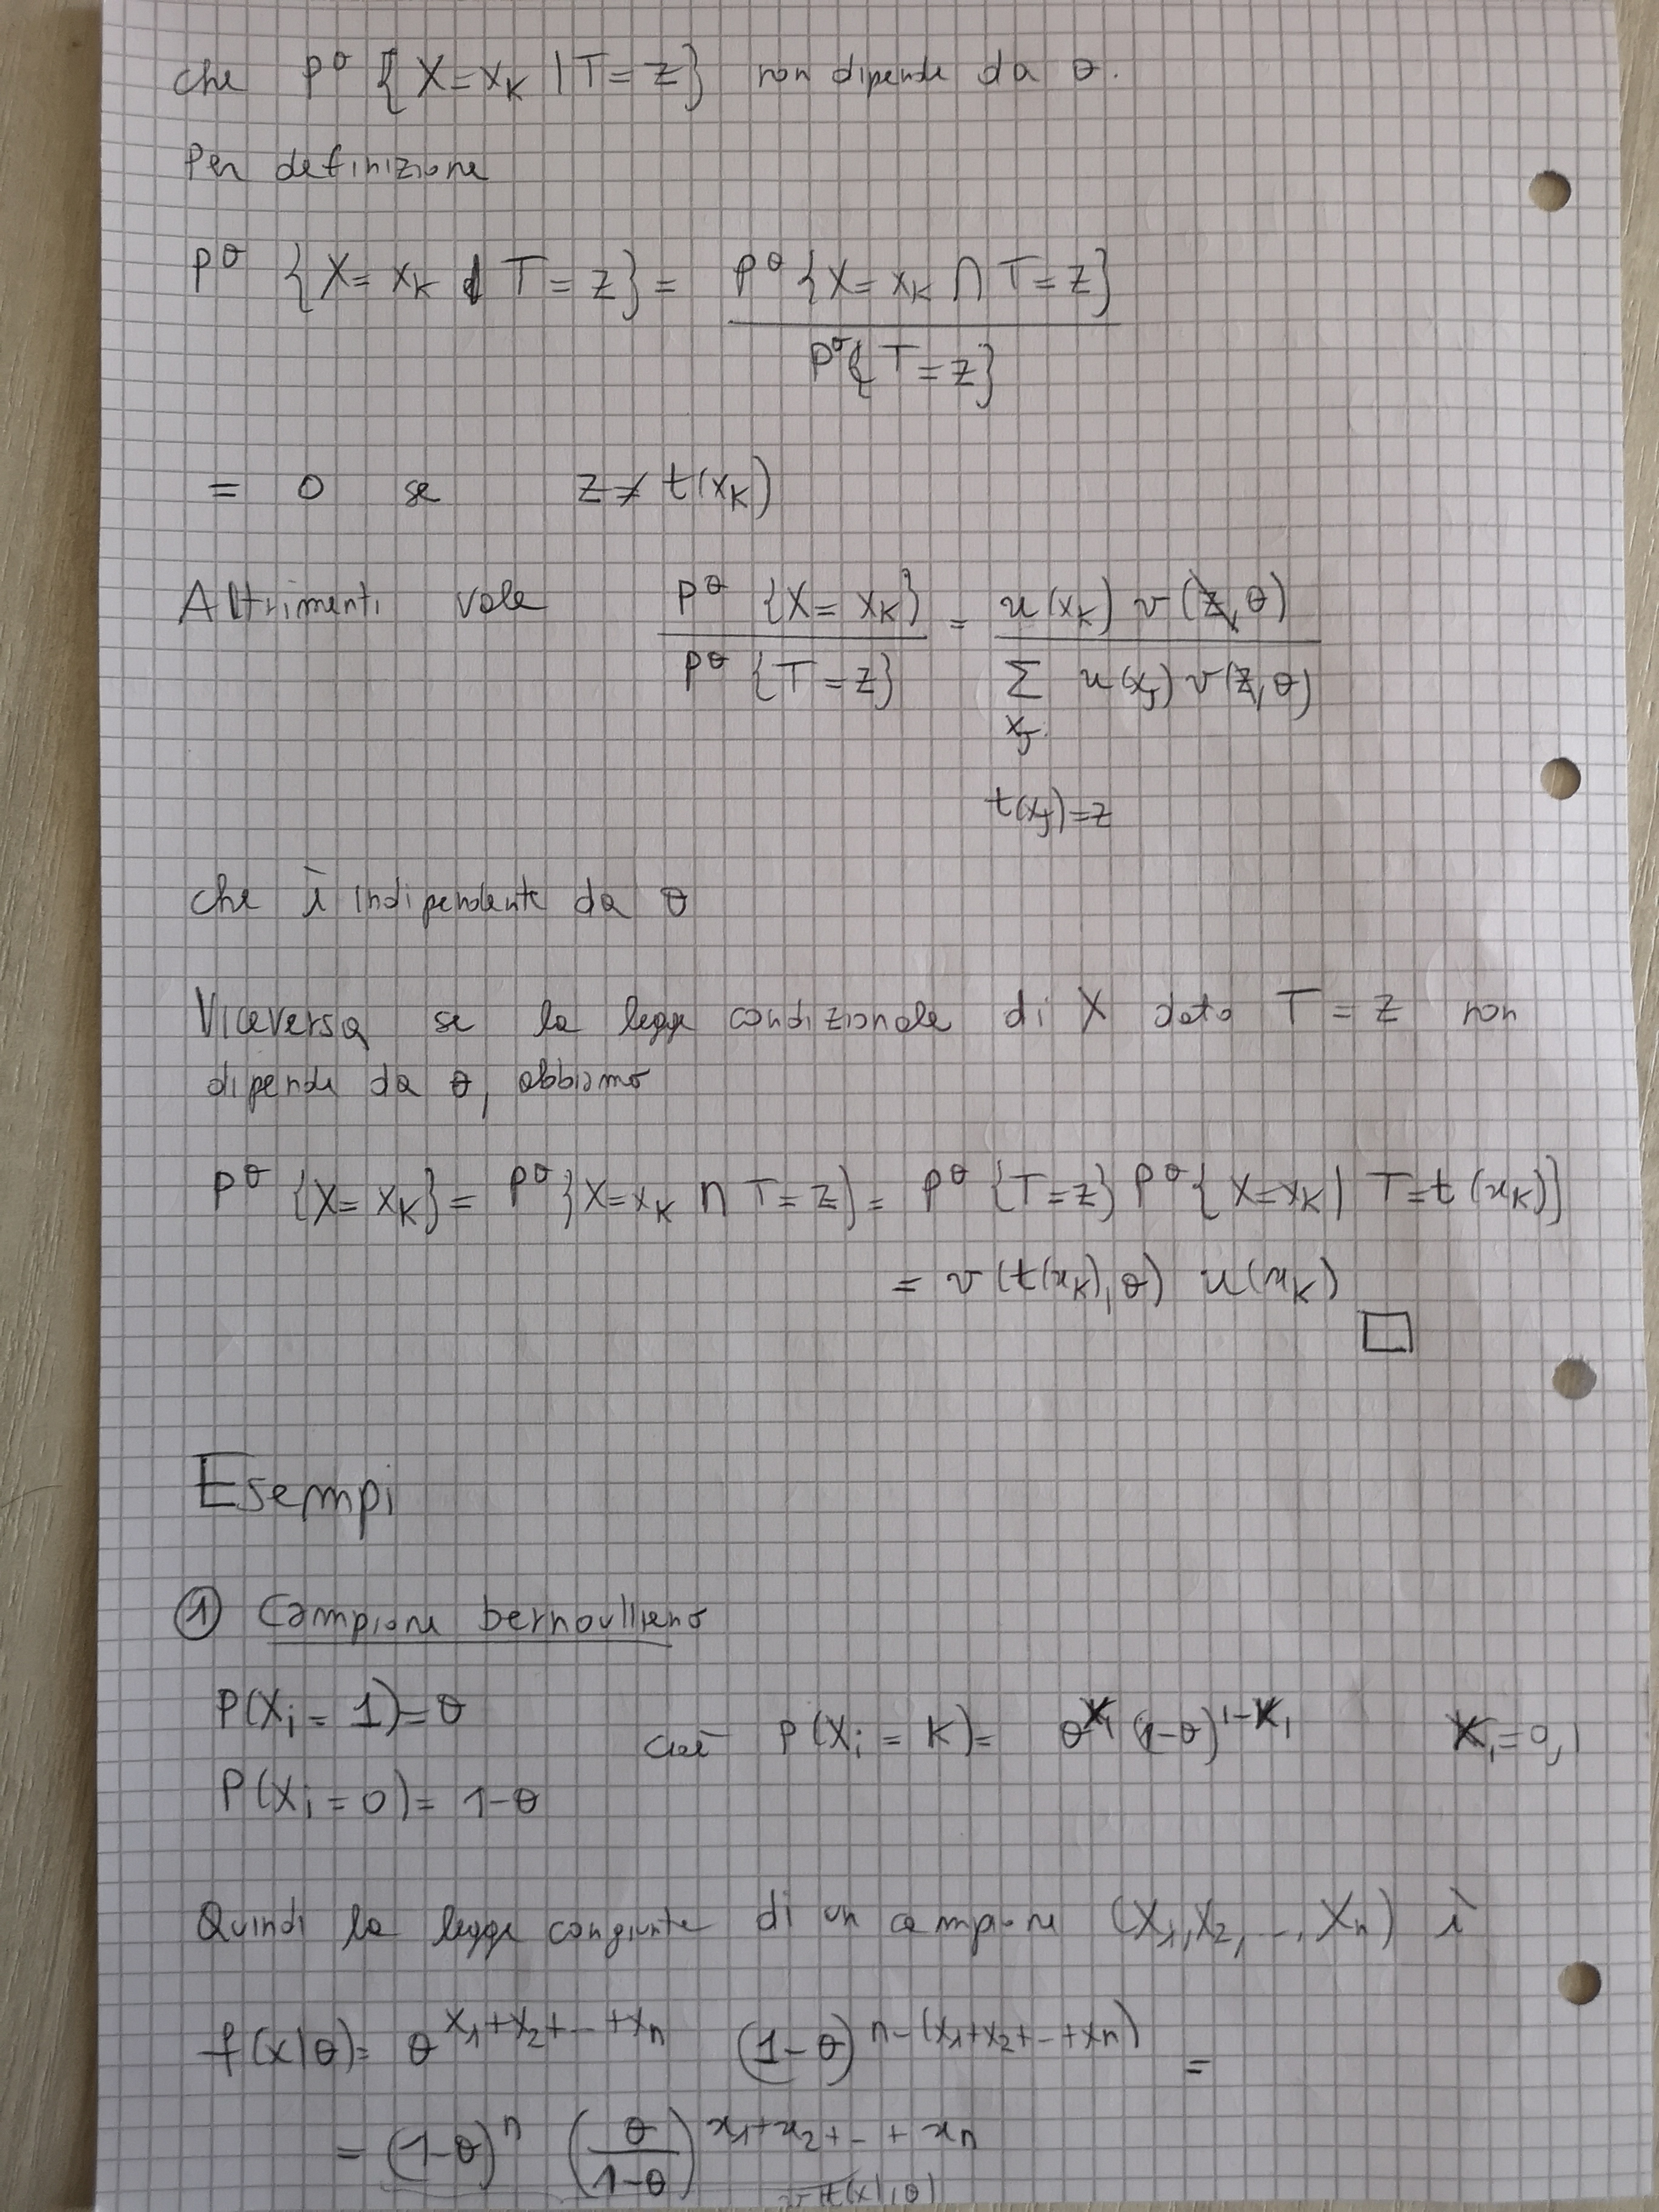 che P^θ {X = x_K | T = z} non dipende da θ.
Per definizione
P^θ {X = x_K | T = z} = P^θ {X = x_K ∩ T = z} / P^θ {T = z}
= 0 se z ≠ t(x_K)
Altrimenti vale P^θ {X = x_K} / P^θ {T = z} = u(x_K) v(z, θ) / Σ u(x_j) v(z, θ)
x_j
t(x_j) = z
che è indipendente da θ
Viceversa se la legge condizionale di X dato T = z non
dipende da θ, abbiamo
P^θ {X = x_K} = P^θ {X = x_K ∩ T = z} = P^θ {T = z} P^θ {X = x_K | T = t(x_K)}
= v(t(x_K), θ) u(x_K)
□
Esempi
① Campione bernoulliano
P(X_i = 1) = θ
cioè P(X_i = K) = θ^{x_i} (1-θ)^{1-x_i} x_i = 0,1
P(X_i = 0) = 1-θ
Quindi la legge congiunta di un campione (X_1, X_2, .., X_n) è
f(x|θ) = θ^{x_1+x_2+..+x_n} (1-θ)^{n-(x_1+x_2+..+x_n)} =
= (1-θ)^n (θ/(1-θ))^{x_1+x_2+..+x_n}